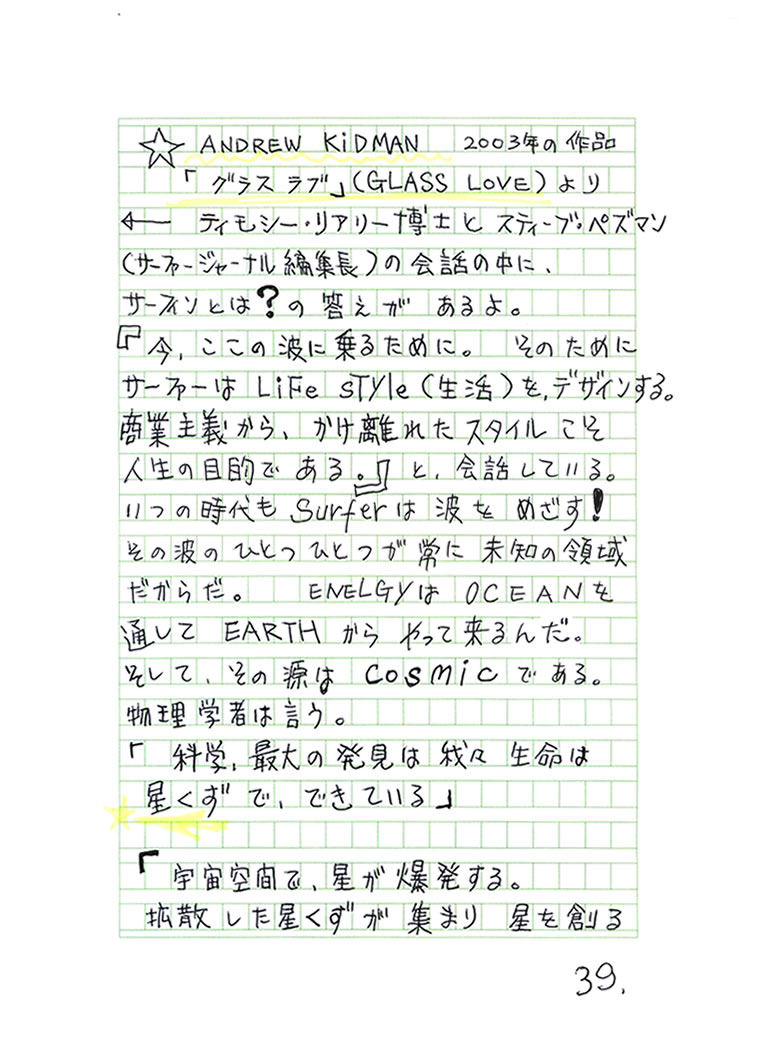 ☆ ANDREW KiDMAN 2003年の作品
「グラス ラブ」(GLASS LOVE)より
← ティモシー・リアリー博士とスティーブ・ペズマン
(サーファージャーナル編集長)の会話の中に、
サーフィンとは?の答えが あるよ。
『今、ここの波に乗るために。 そのために
サーファーは LiFe sTyle(生活)を、デザインする。
商業主義から、かけ離れたスタイルこそ
人生の目的で ある。』と、会話している。
いつの時代も Surferは 波を めざす!
その波の ひとつひとつが 常に 未知の領域
だからだ。 ENELGYは OCEANを
通して EARTH から やって来るんだ。
そして、その源は cosmic で ある。
物理学者は言う。
「科学、最大の発見は 我々 生命は
星くず で、できている」
「宇宙空間で、星が 爆発する。
拡散した星くずが 集まり 星を創る
39.